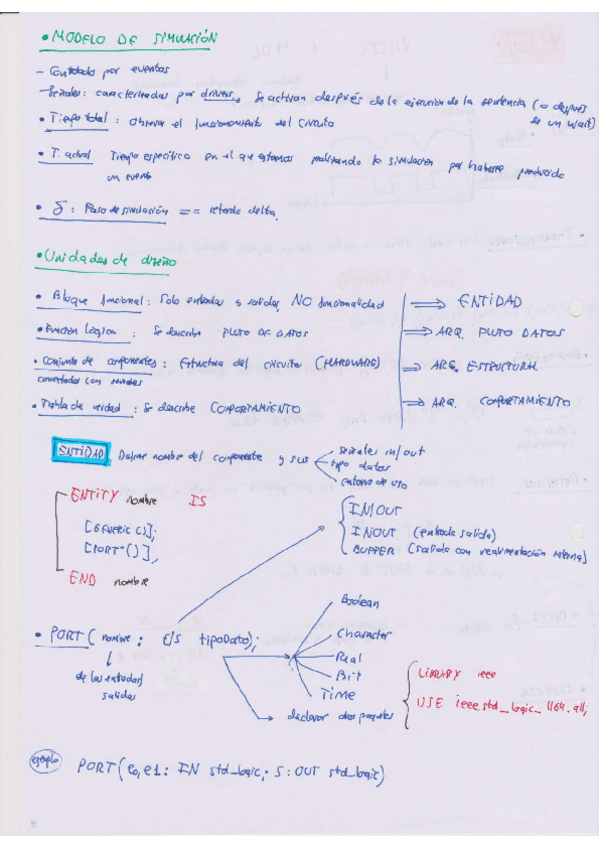 • MODELO DE SIMULACIÓN
- Controlado por eventos
- Señales: caracterizadas por drivers, se activan después de la ejecución de la sentencia (o después de un wait)
• Tiempo total: Observar el funcionamiento del circuito
• T. actual Tiempo específico en el que estamos realizando la simulación por haberse producido
un evento
• δ: Paso de simulación == retardo delta.
• Unidades de diseño
• Bloque funcional: Solo entradas y salidas, NO funcionalidad ⟹ ENTIDAD
• Función Lógica: Se describe FLUJO DE DATOS → ARQ. FLUJO DATOS
• Conjunto de componentes: Estructura del circuito (HARDWARE) ⟹ ARQ. ESTRUCTURAL
conectados con señales
• Tabla de verdad: Se describe COMPORTAMIENTO ⟹ ARQ. COMPORTAMIENTO
ENTIDAD Definir nombre del componente y sus
señales in/out
tipo datos
entorno de uso
ENTITY nombre IS
[GENERIC ()];
[PORT ()];
END nombre
IN/OUT
INOUT (entrada salida)
BUFFER (salida con realimentación interna)
• PORT (nombre: E/S tipoDato);
de las entradas/
salidas
Boolean
Character
Real
Bit
Time
declarar otros paquetes
LIBRARY ieee
USE ieee.std_logic_1164.all;
ejemplo PORT (e0, e1: IN std_logic; S: OUT std_logic)